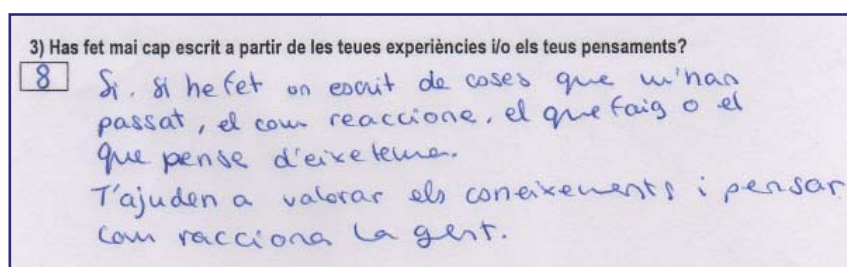 3) Has fet mai cap escrit a partir de les teues experiències i/o els teus pensaments?
8 Si. Si he fet un escrit de coses que m'han
passat, el com reaccione, el que faig o el
que pense d'eixe tema.
T'ajuden a valorar els coneixements i pensar
com racciona la gent.